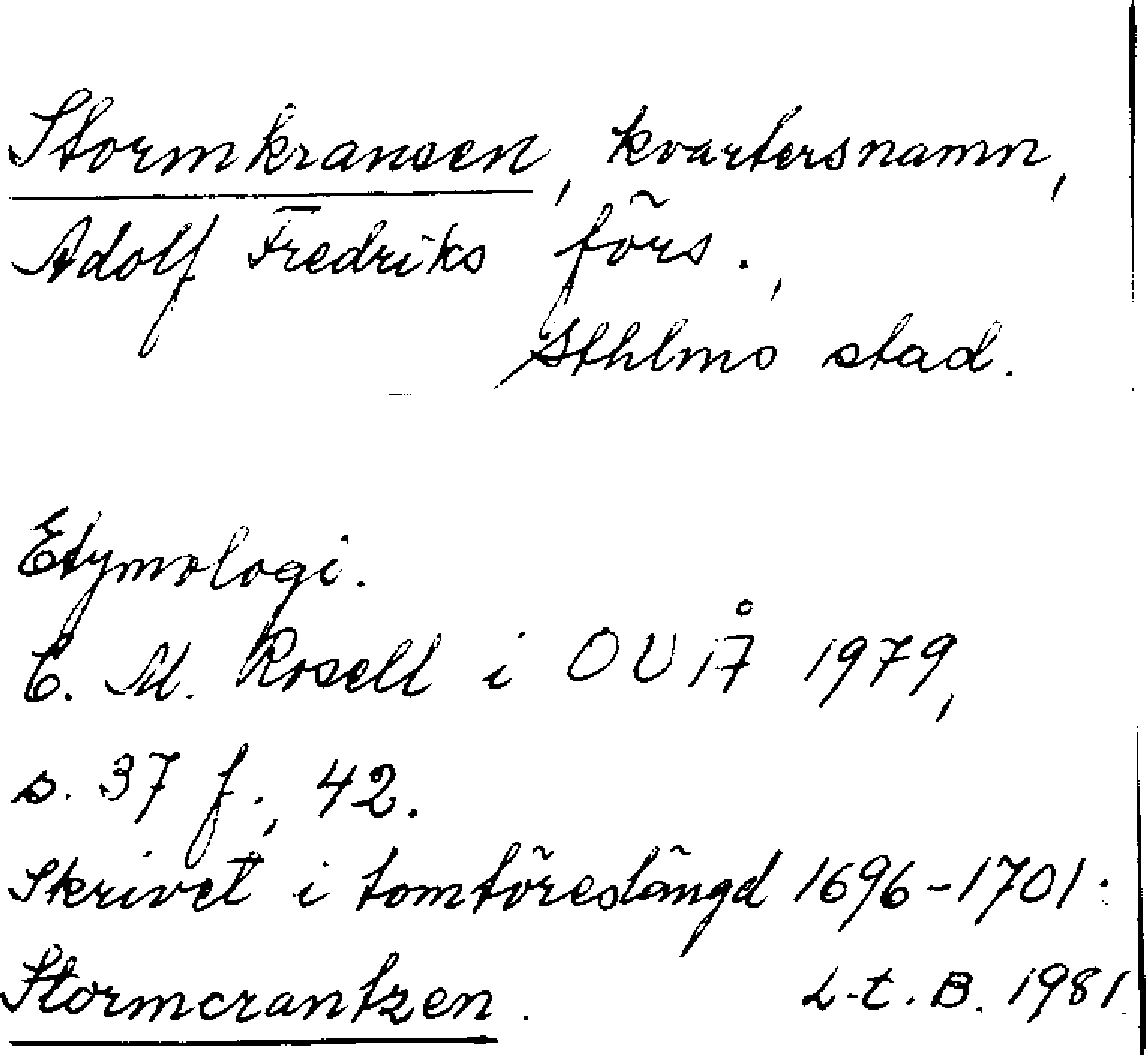 Stormkransen, kvartersnamn,
Adolf Fredriks förs.,
Sthlms stad.
Etymologi.
C. M. Rosell i OUÅ 1979,
s. 37 f., 42.
Skrivet i tomtöreslängd 1696-1701:
Stormcrantzen.
L-t. B. 1981